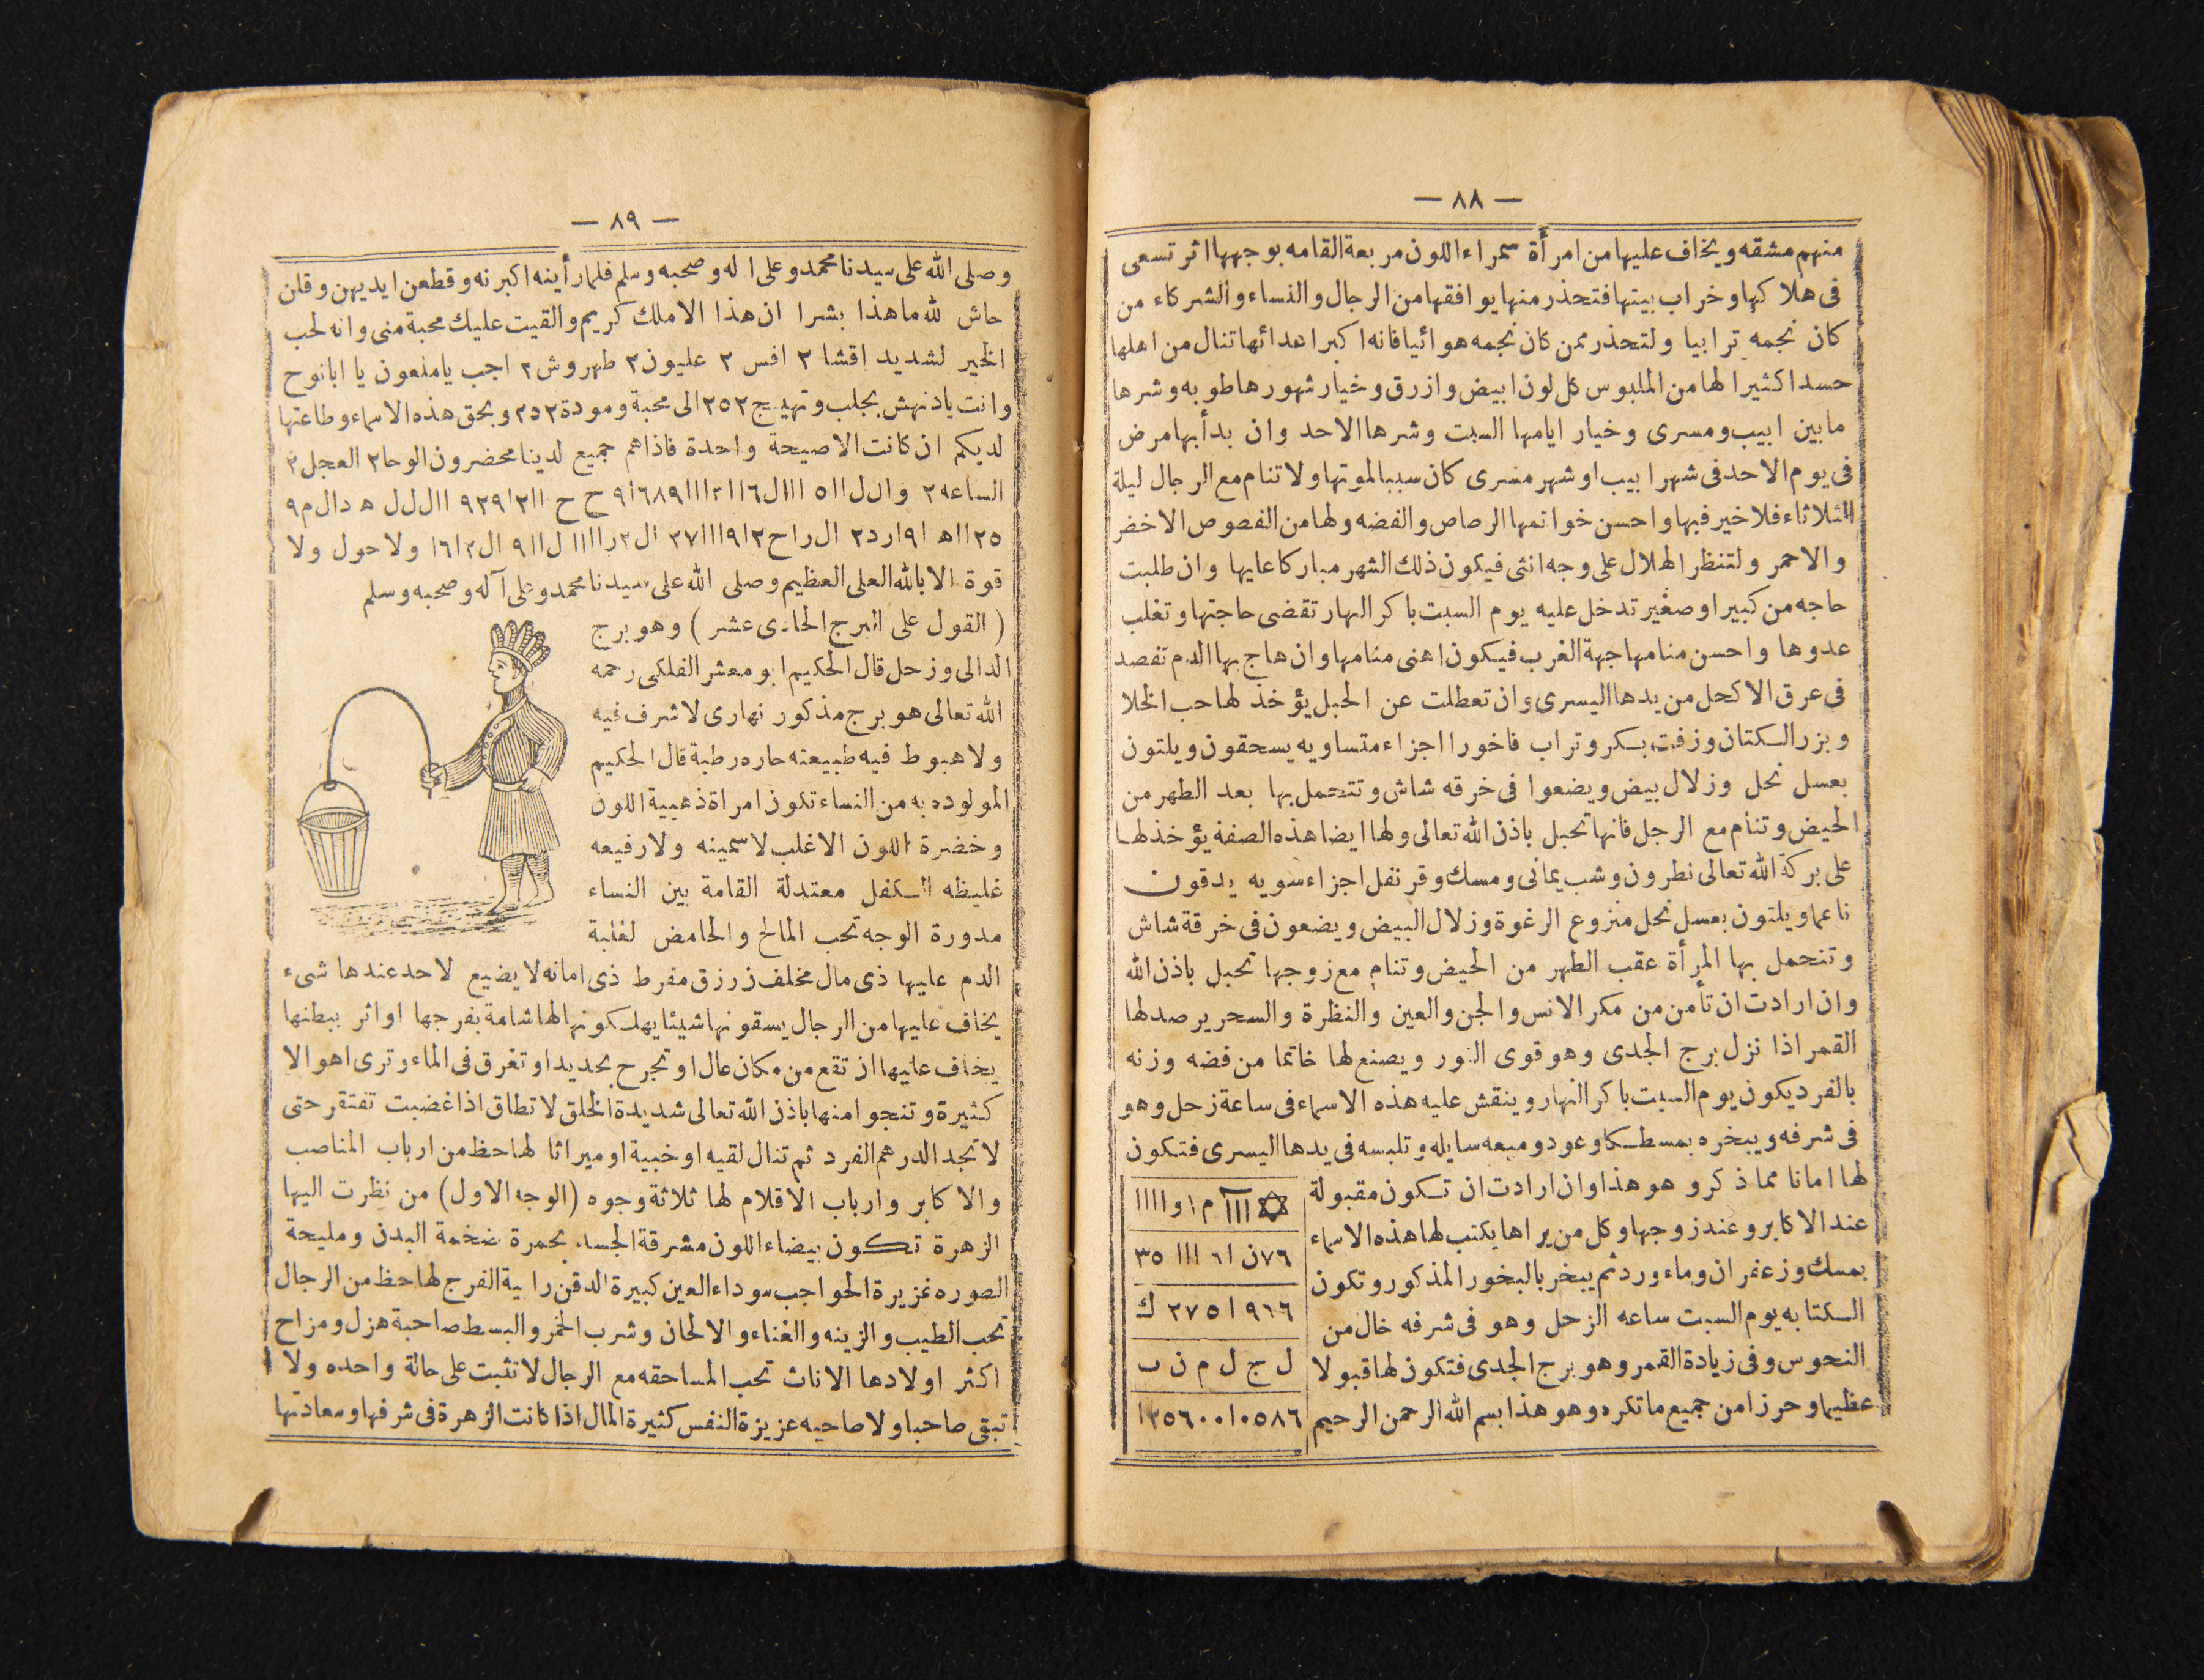 — ٨٨ —
منهم مشقه ويخاف عليها من امرأة سمراء اللون مربعة القامه بوجهها اثر تسعى
فى هلاكها وخراب بيتها فتحذر منها يوافقها من الرجال والنساء والشركاء من
كان نجمه ترابيا ولتحذر ممن كان نجمه هوائيا فانه اكبر اعدائها تنال من اهلها
حسدا كثيرا لها من الملبوس كل لون ابيض وازرق وخيار شهورها طوبه وشرها
مابين ابيب ومسرى وخيار ايامها السبت وشرها الاحد وان بدأ بها مرض
فى يوم الاحد فى شهر ابيب او شهر مسرى كان سببا لموتها ولا تنام مع الرجال ليلة
الثلاثاء فلا خير فيها واحسن خواتمها الرصاص والفضه ولها من الفصوص الاخضر
والاحمر ولتنظر الهلال على وجه انثى فيكون ذلك الشهر مباركا عليها وان طلبت
حاجه من كبير او صغير تدخل عليه يوم السبت باكر النهار تقضى حاجتها وتغلب
عدوها واحسن منامها جهة الغرب فيكون اهنى منامها وان هاج بها الدم تفصد
فى عرق الاكحل من يدها اليسرى وان تعطلت عن الحبل يؤخذ لها حب الخلا
وبزر الكتان وزفت بكر وتراب فاخورا اجزاء متساويه يسحقون ويلتون
بعسل نحل وزلال بيض ويضعوا فى خرقه شاش وتتحمل بها بعد الطهر من
الحيض وتنام مع الرجل فانها تحبل باذن الله تعالى ولها ايضا هذه الصفة يؤخذ لها
على بركة الله تعالى نطرون وشب يمانى ومسك وقرنفل اجزاء سويه يدقون
ناعما ويلتون بعسل نحل منزوع الرغوة وزلال البيض ويضعون فى خرقة شاش
وتتحمل بها المرأة عقب الطهر من الحيض وتنام مع زوجها تحبل باذن الله
وان ارادت ان تأمن من مكر الانس والجن والعين والنظرة والسحر يرصد لها
القمر اذا نزل برج الجدى وهو قوى النور ويصنع لها خاتما من فضه وزنه
بالفرد يكون يوم السبت باكر النهار وينقش عليه هذه الاسماء فى ساعة زحل وهو
فى شرفه ويبخره بمسطكا وعود وميعه سايله وتلبسه فى يدها اليسرى فتكون
لها امانا مما ذكر وهو هذا وان ارادت ان تكون مقبولة
عند الاكابر وعند زوجها وكل من يراها يكتب لها هذه الاسماء
بمسك وزعفران وماء ورد ثم يبخر بالبخور المذكور وتكون
الكتابه يوم السبت ساعه الزحل وهو فى شرفه خال من
النحوس وفى زيادة القمر وهو برج الجدى فتكون لها قبولا
عظيما وحرزا من جميع ما تكره وهو هذا بسم الله الرحمن الرحيم
✡ ااا م ا و اااا
٧٦ن ا٦ ااا ٣٥
٩٦٦ا ٢٧٥ ك
ل ج ل م ن ب
— ٨٩ —
وصلى الله على سيدنا محمد وعلى اله وصحبه وسلم فلما رأينه اكبرنه وقطعن ايديهن وقلن
حاش لله ماهذا بشرا ان هذا الا ملك كريم والقيت عليك محبة منى وانه لحب
الخير لشديد اقشا ٢ افس ٢ عليون ٢ طهروش ٢ اجب ياملعون يا ابانوح
وانت يادنهش بجلب وتهييج ٢٥٢ الى محبة ومودة ٢د٢ وبحق هذه الاسماء وطاعتها
لديكم ان كانت الا صيحة واحدة فاذاهم جميع لدينا محضرون الوحا ٢ العجل ٢
الساعه ٢
ولا حول ولا
قوة الا بالله العلى العظيم وصلى الله على سيدنا محمد وعلى آله وصحبه وسلم
( القول على البرج الحادى عشر ) وهو برج
الدالى وزحل قال الحكيم ابو معشر الفلكى رحمه
الله تعالى هو برج مذكور نهارى لا شرف فيه
ولا هبوط فيه طبيعته حاره رطبة قال الحكيم
المولوده به من النساء تكون امراة ذهبية اللون
وخضرة اللون الاغلب لا سمينه ولا رفيعه
غليظه الكفل معتدلة القامة بين النساء
مدورة الوجه تحب المالح والحامض لغلبة
الدم عليها ذى مال مخلف رزق مفرط ذى امانه لا يضيع لاحد عندها شىء
يخاف عليها من الرجال يسقونها شيئا يهلكونها لها شامة بفرجها او اثر ببطنها
يخاف عليها ان تقع من مكان عال او تجرح بحديد او تغرق فى الماء وترى اهوالا
كثيرة وتنجوا منها باذن الله تعالى شديدة الخلق لا تطاق اذا غضبت تفتقر حتى
لا تجد الدرهم الفرد ثم تنال لقيه او خبية او ميراثا لها حظ من ارباب المناصب
والاكابر وارباب الاقلام لها ثلاثة وجوه (الوجه الاول) من نظرت اليها
الزهرة تكون بيضاء اللون مشرقة الجسد بحمرة ضخمة البدن ومليحة
الصوره غزيرة الحواجب سوداء العين كبيرة الدقن رابية الفرج لها حظ من الرجال
تحب الطيب والزينه والغناء والالحان وشرب الخمر والبسط صاحبة هزل ومزاح
اكثر اولادها الاناث تحب المساحقه مع الرجال لا تثبت على حالة واحده ولا
تبقى صاحبا ولا صاحبه عزيزة النفس كثيرة المال اذا كانت الزهرة فى شرفها وسعادتها